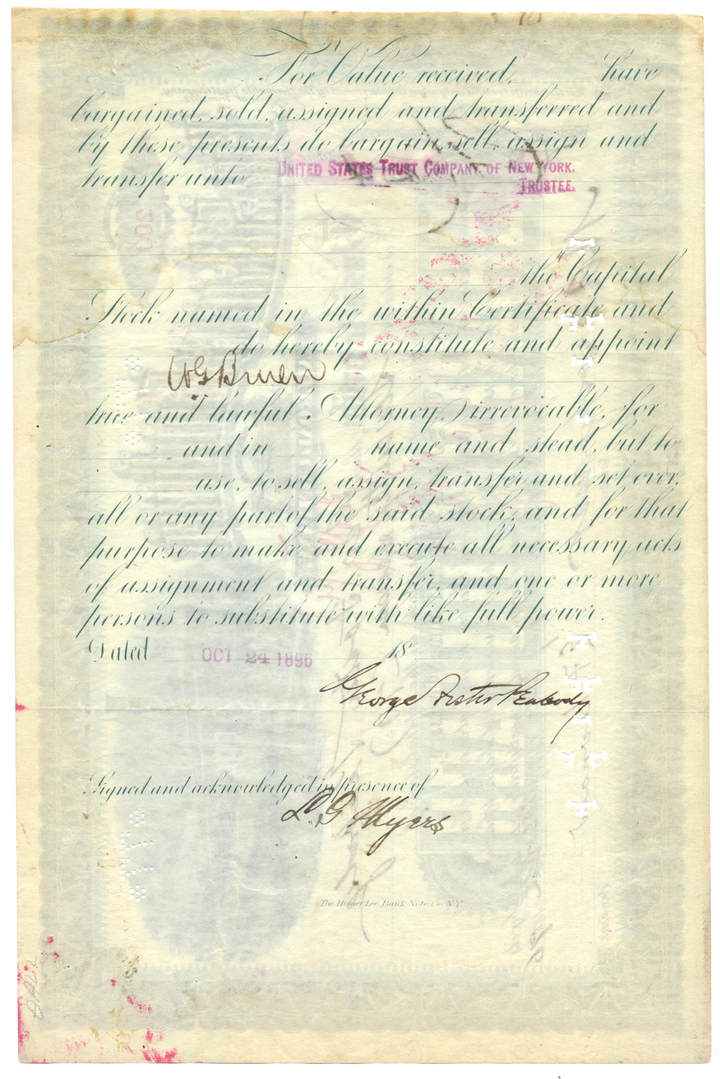 For Value received, have
bargained, sold, assigned and transferred and
by these presents do bargain, sell, assign and
transfer unto UNITED STATES TRUST COMPANY OF NEW YORK,
TRUSTEE.
the Capital
Stock named in the within Certificate and
do hereby constitute and appoint
W G Bruen
true and lawful Attorney, irrevocable, for
and in name and stead, but to
use, to sell, assign, transfer and set over,
all or any part of the said stock, and for that
purpose to make and execute all necessary acts
of assignment and transfer, and one or more
persons to substitute with like full power.
Dated OCT 24 1896 18
George Foster Peabody
Signed and acknowledged in presence of
L G Myers
The Homer Lee Bank Note Co. N.Y.